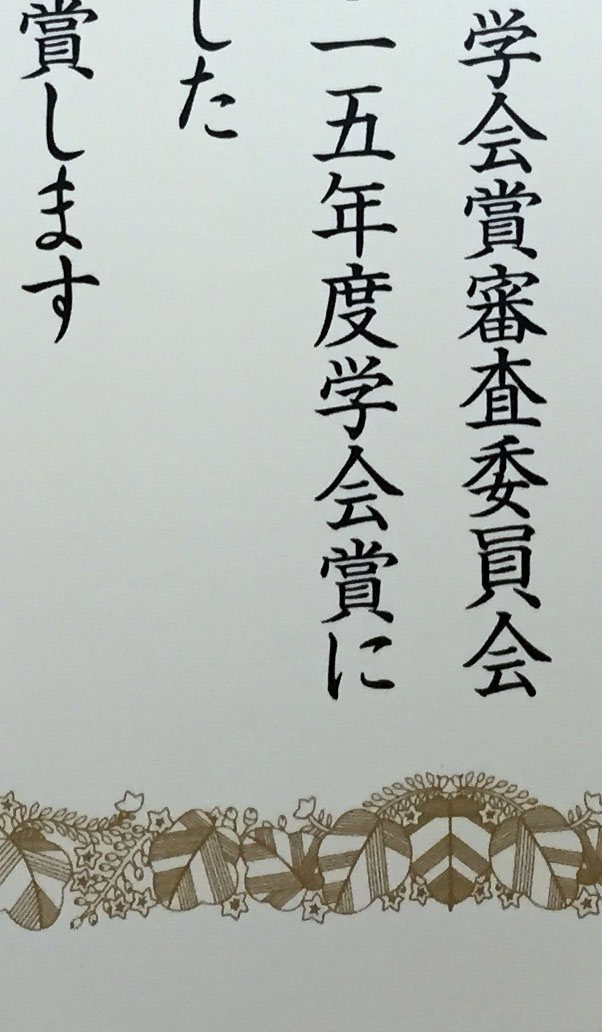 学会賞審査委員会
一五年度学会賞に
した
賞します